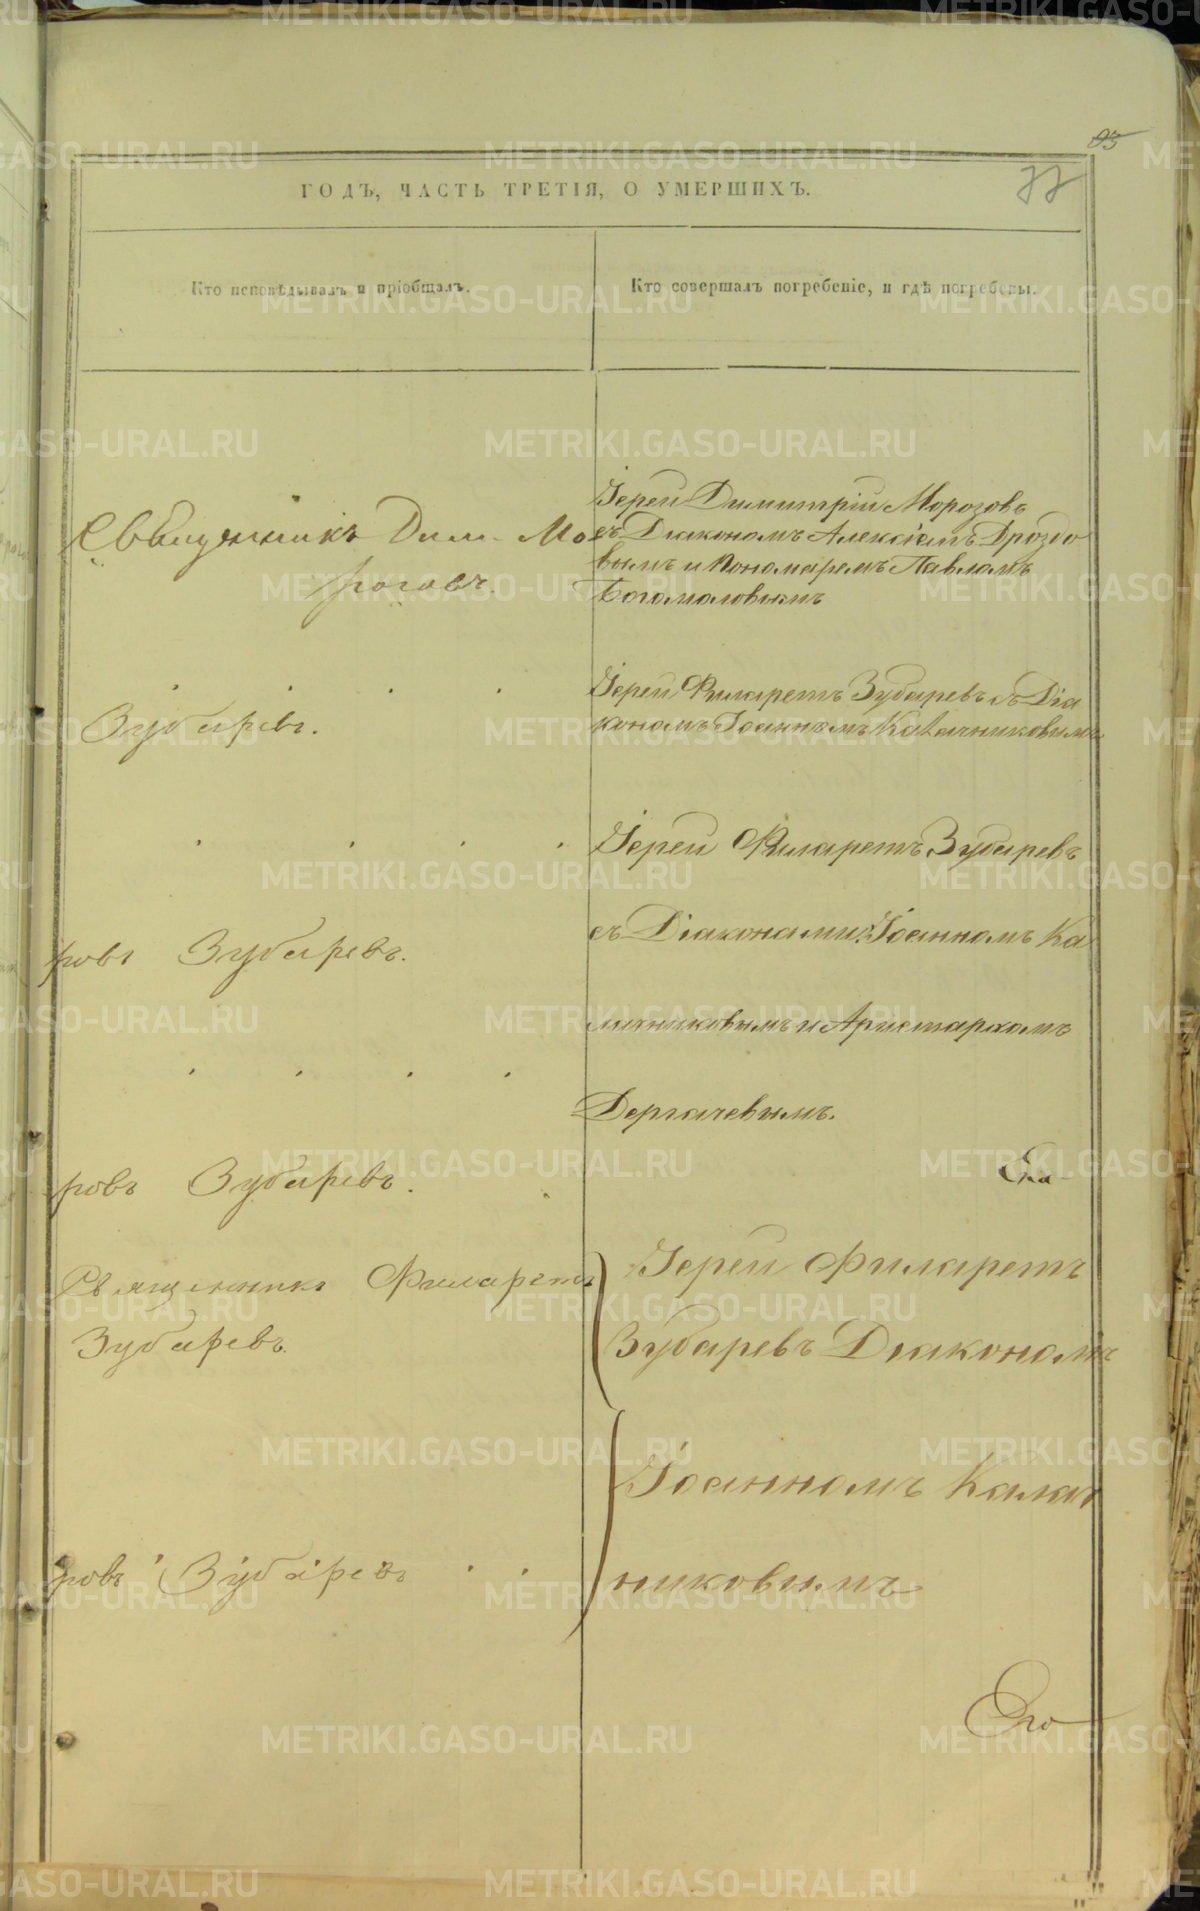 93
77
ГОДЪ, ЧАСТЬ ТРЕТІЯ, О УМЕРШИХЪ.
Кто исповѣдывалъ и пріобщалъ.
Кто совершалъ погребеніе, и гдѣ погребены.
Священникъ Дим. Мо
розовъ.
Іерей Димитрій Морозовъ
съ Діакономъ Алексіемъ Дроздо
вымъ и Пономаремъ Павломъ
Богомоловымъ
Зубаревъ.
Іерей Филаретъ Зубаревъ съ Діа
кономъ Іоанномъ Калачниковымъ
ровъ Зубаревъ.
Іерей Филаретъ Зубаревъ
съ Діаконами: Іоанномъ Ка
лачниковымъ и Аристархомъ
Дергачевымъ.
ровъ Зубаревъ.
Священникъ Филаретъ
Зубаревъ.
Іерей Филаретъ
Зубаревъ Діакономъ
Іоанномъ Калач
никовымъ
ровъ Зубаревъ
METRIKI.GASO-URAL.RU